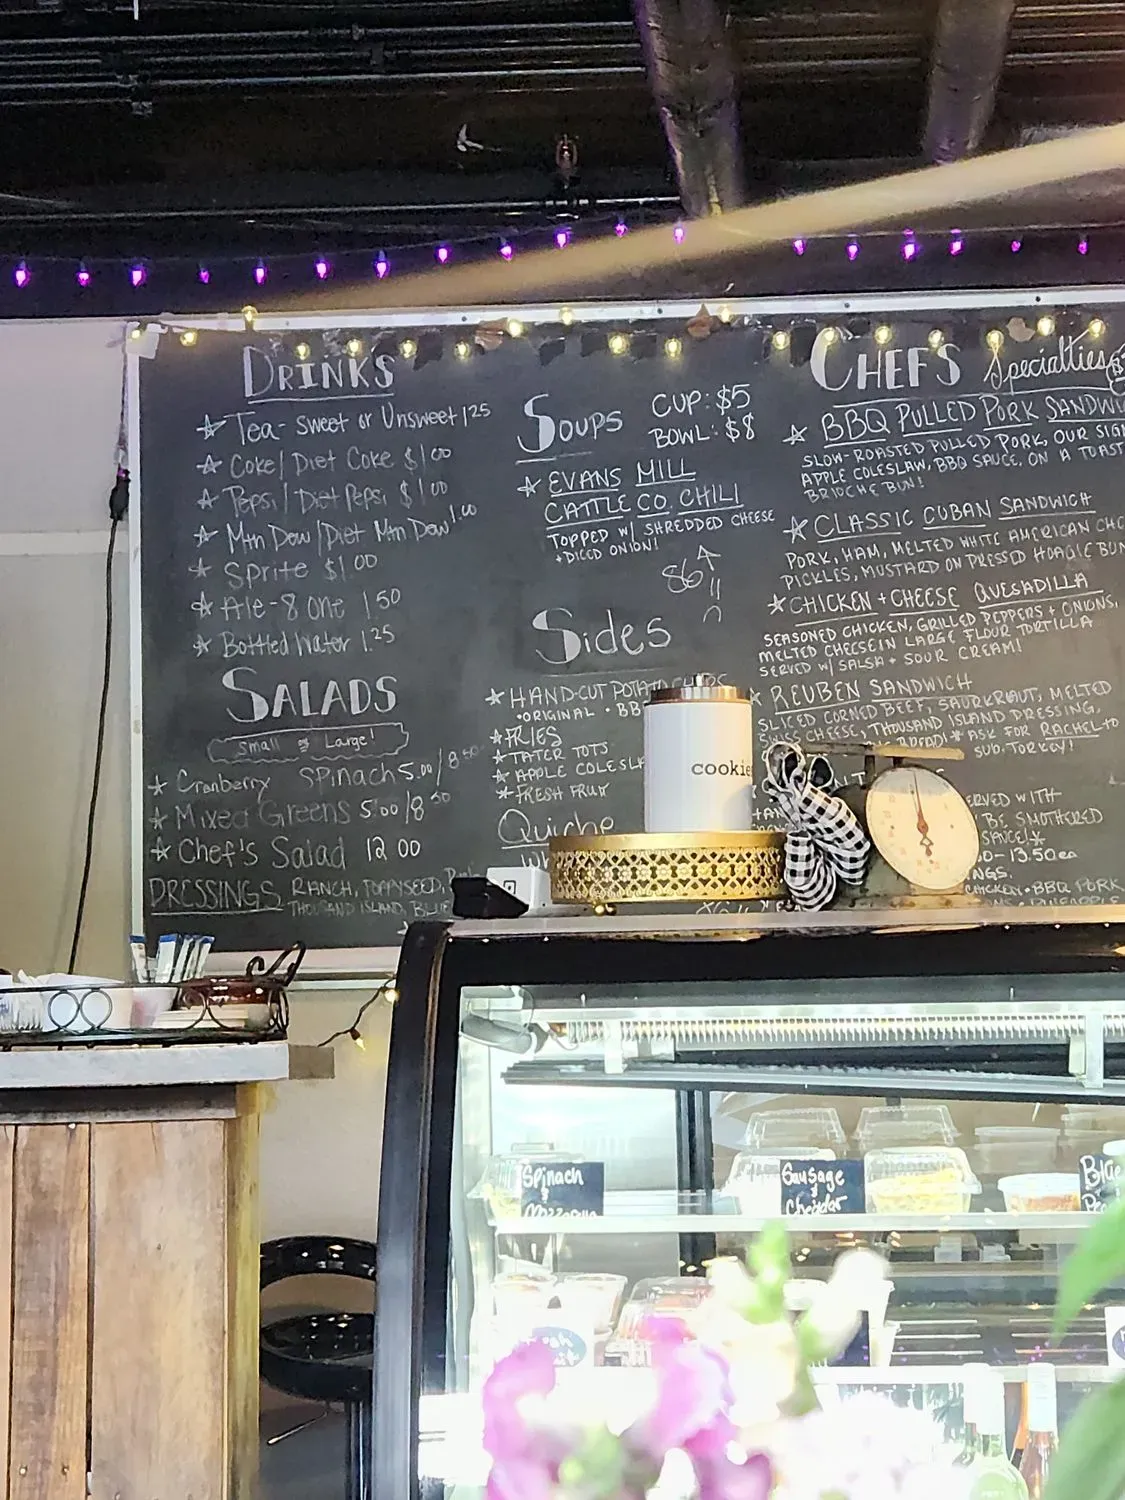 DRINKS
☆ Tea - Sweet or Unsweet 1.25
☆ Coke / Diet Coke $1.00
☆ Pepsi / Diet Pepsi $1.00
☆ Mtn Dew / Diet Mtn Dew 1.00
☆ Sprite $1.00
☆ Ale-8 One 1.50
☆ Bottled Water 1.25
SALADS
Small or Large!
☆ Cranberry Spinach 5.00/8.50
☆ Mixed Greens 5.00/8.50
☆ Chef's Salad 12.00
DRESSINGS RANCH, POPPYSEED,
THOUSAND ISLAND,
SOUPS CUP: $5
BOWL: $8
☆ EVANS MILL
CATTLE CO. CHILI
TOPPED W/ SHREDDED CHEESE
+ DICED ONION!
86
Sides
☆ HAND-CUT POTATO CHIPS
• ORIGINAL •
☆ FRIES
☆ TATER TOTS
☆ APPLE
☆ FRESH FRUIT
Quiche
CHEF'S Specialties
☆ BBQ PULLED PORK
SLOW-ROASTED PULLED PORK, OUR
APPLE COLESLAW, BBQ SAUCE, ON A
BRIOCHE BUN!
☆ CLASSIC CUBAN SANDWICH
PORK, HAM, MELTED WHITE AMERICAN
PICKLES, MUSTARD ON PRESSED HOAGIE BUN
☆ CHICKEN + CHEESE QUESADILLA
SEASONED CHICKEN, GRILLED PEPPERS + ONIONS,
MELTED CHEESE IN LARGE FLOUR TORTILLA
SERVED W/ SALSA + SOUR CREAM!
☆ REUBEN SANDWICH
SLICED CORNED BEEF, SAURKRAUT, MELTED
SWISS CHEESE, THOUSAND ISLAND DRESSING,
☆ ASK FOR RACHEL TO
SUB TURKEY!
WITH
BE SMOTHERED
SAUCE!☆
13.50ea
BBQ PORK
cookie
Spinach
&
Mozzarella
Sausage
&
Cheddar